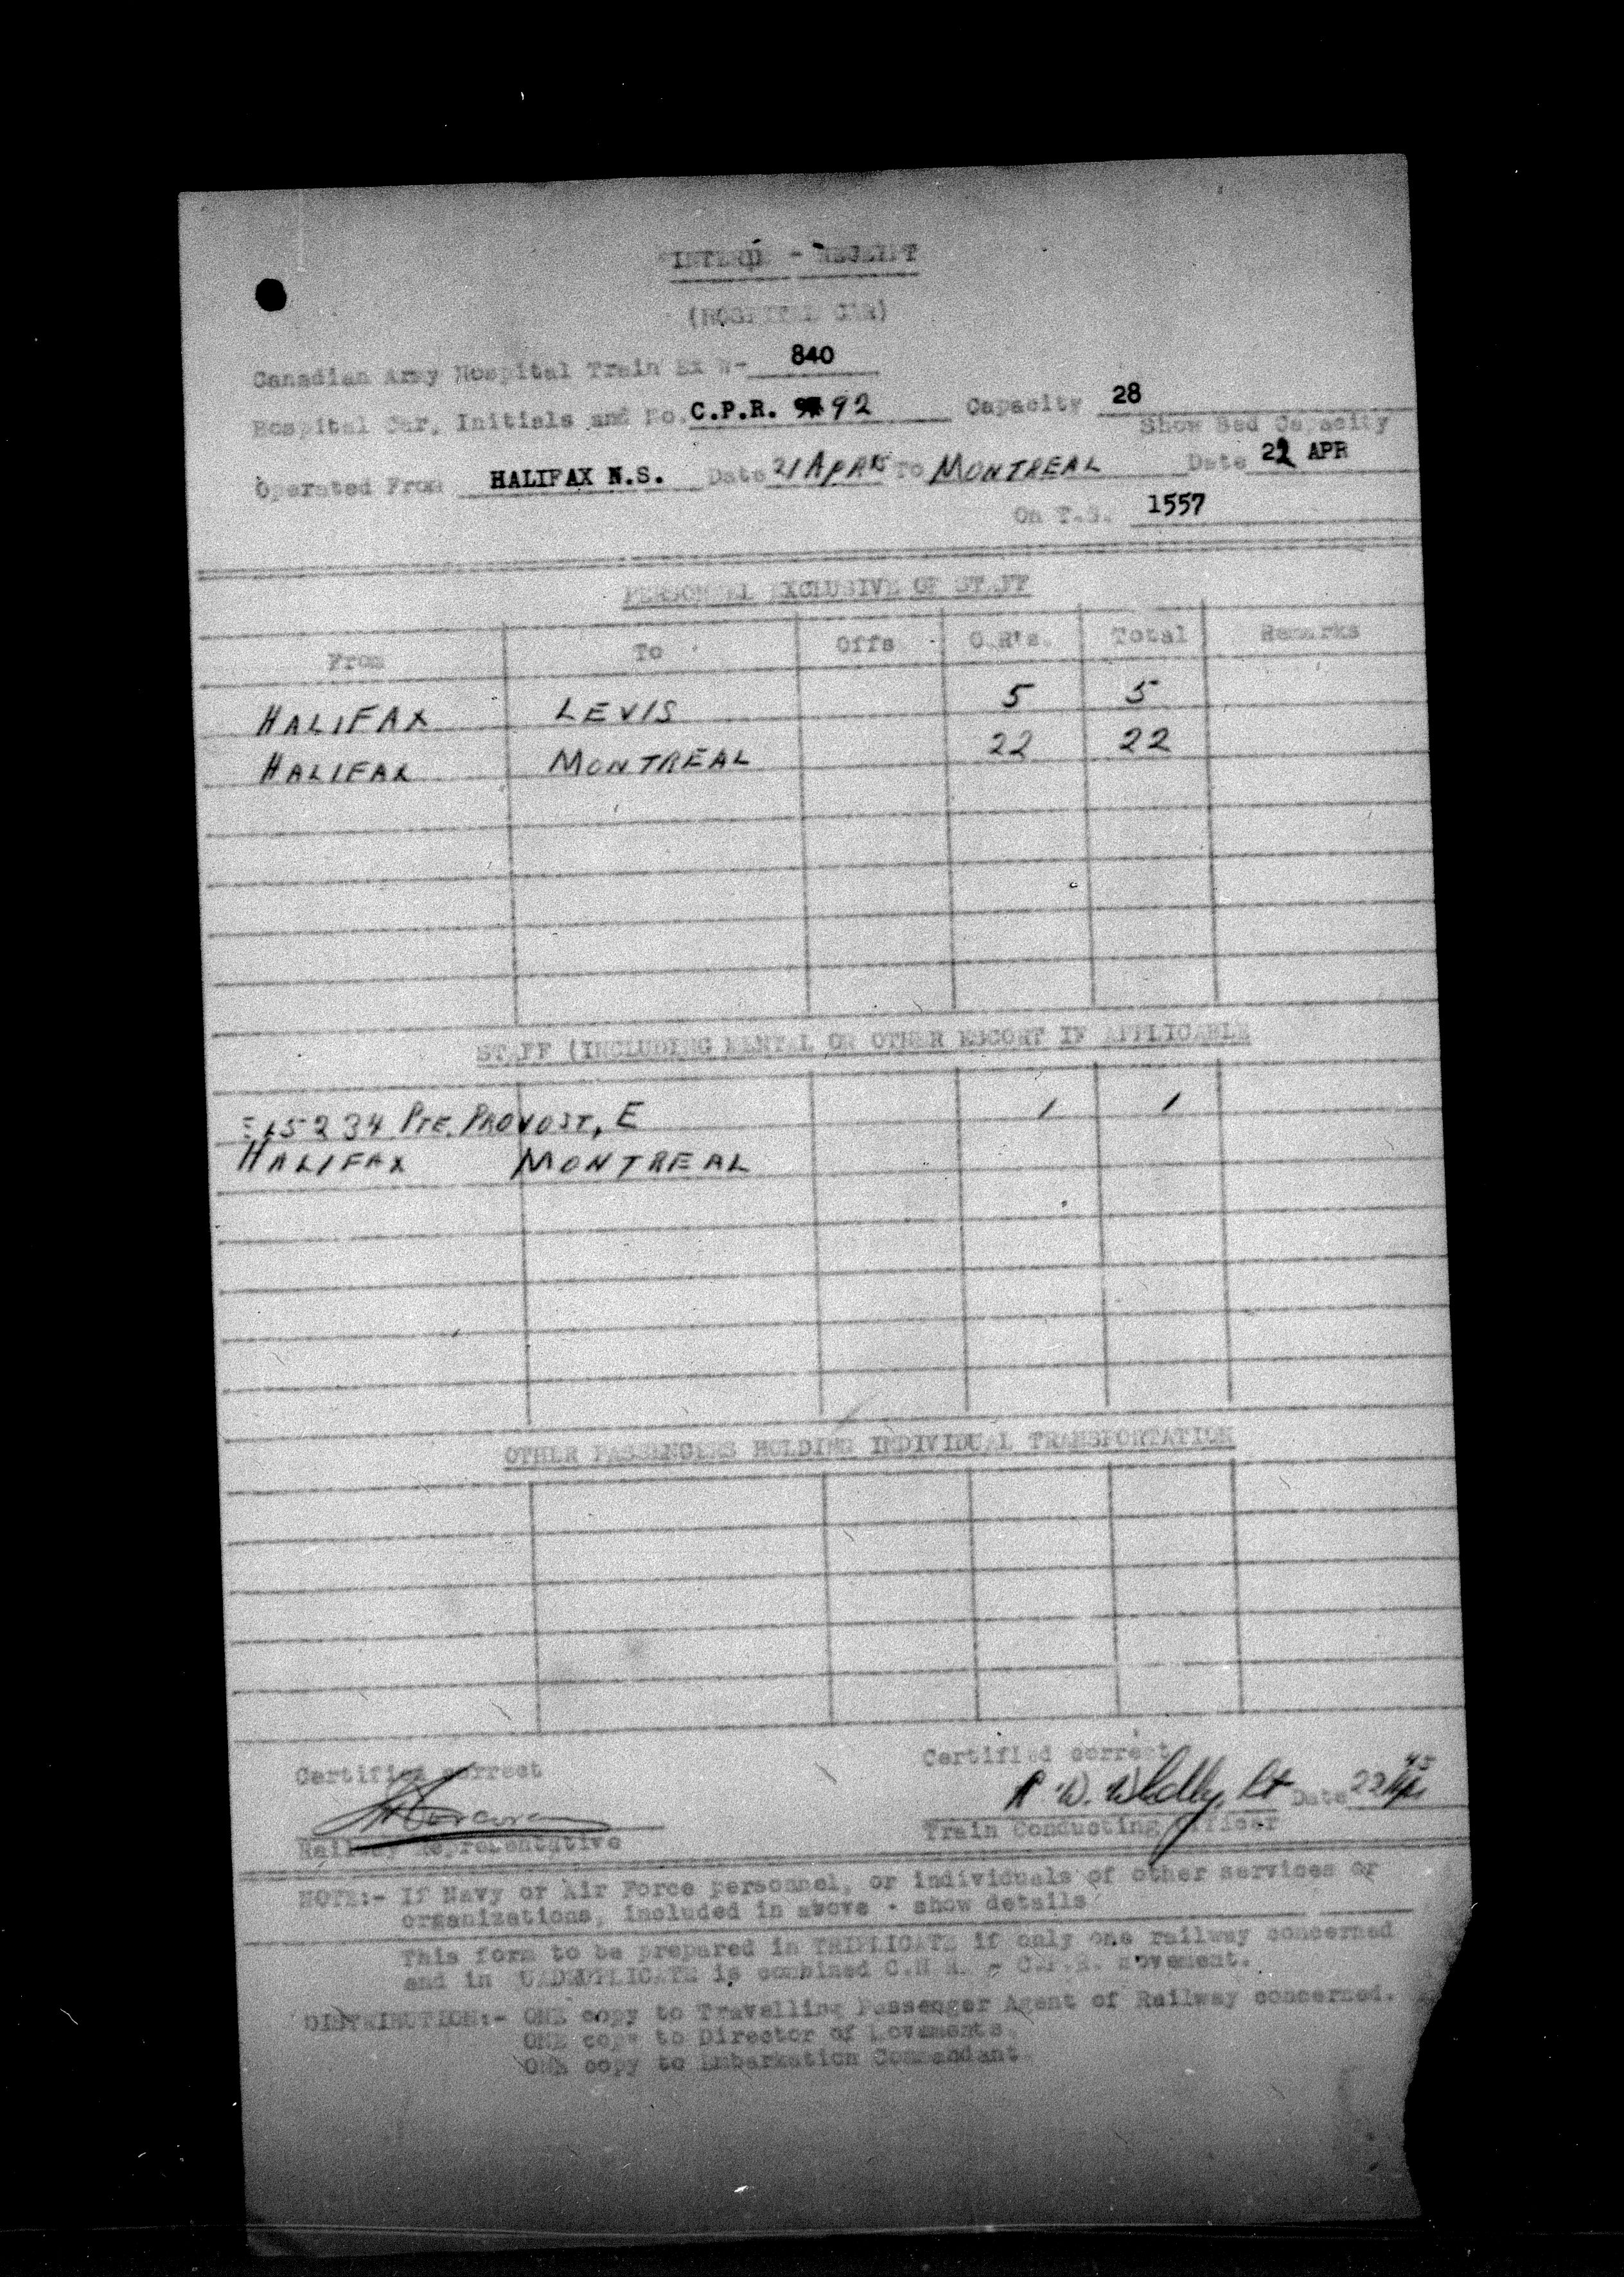 INTERIM - RECEIPT
(HOSPITAL CAR)
Canadian Army Hospital Train Ex W- 840
Hospital Car, Initials and No. C.P.R. 92 Capacity 28
Show Bed Capacity
Operated From HALIFAX N.S. Date 21 APR 45 To MONTREAL Date 22 APR
On T.S. 1557
PERSONNEL EXCLUSIVE OF STAFF
From To Offs O.R's. Total Remarks
HALIFAX LEVIS 5 5
HALIFAX MONTREAL 22 22
STAFF (INCLUDING MENTAL OR OTHER ESCORT IF APPLICABLE
PTE. PROVOST, E 1 1
HALIFAX MONTREAL
OTHER PASSENGERS HOLDING INDIVIDUAL TRANSPORTATION
Certified correct Certified correct
Lt Date 22 Apr 45
Railway Representative Train Conducting Officer
NOTE:- If Navy or Air Force personnel, or individuals of other services or
organizations, included in above - show details
This form to be prepared in TRIPLICATE if only one railway concerned
and in is combined C.N.R. - C.P.R. movement.
DISTRIBUTION:- ONE copy to Travelling Passenger Agent of Railway concerned.
ONE copy to Director of Movements.
ONE copy to Embarkation Commandant.